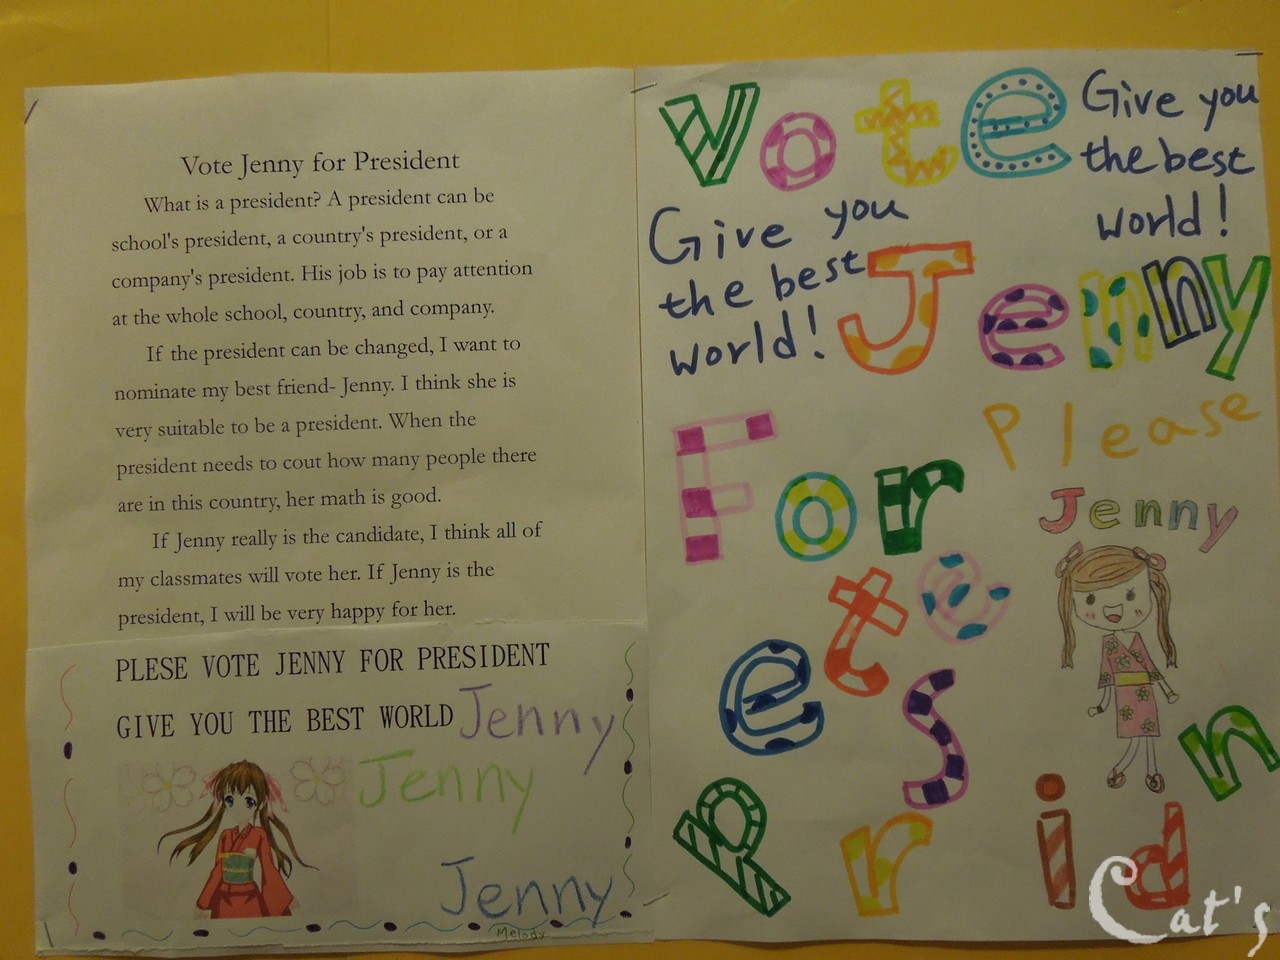 Vote Jenny for President
What is a president? A president can be
school's president, a country's president, or a
company's president. His job is to pay attention
at the whole school, country, and company.
If the president can be changed, I want to
nominate my best friend- Jenny. I think she is
very suitable to be a president. When the
president needs to cout how many people there
are in this country, her math is good.
If Jenny really is the candidate, I think all of
my classmates will vote her. If Jenny is the
president, I will be very happy for her.
PLESE VOTE JENNY FOR PRESIDENT
GIVE YOU THE BEST WORLD
Jenny
Jenny
Jenny
Melody
Vote
Give you
the best
world!
Give you
the best
world!
Jenny
For
Please
Jenny
President
Cat's